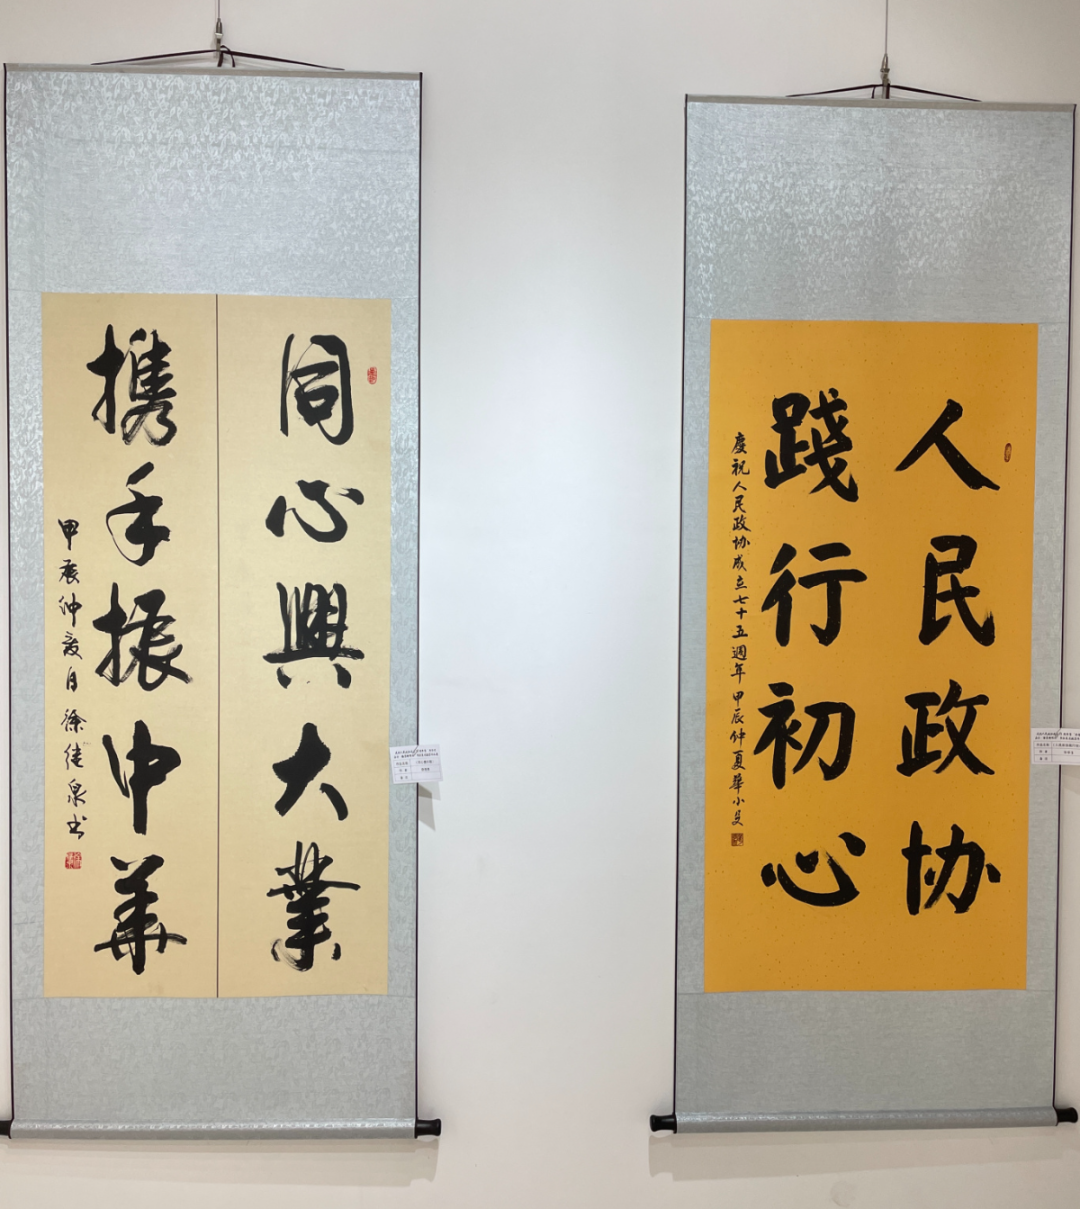 同心興大業
携手振中華
甲辰仲夏月 徐泉书
人民政协
踐行初心
慶祝人民政协成立七十五週年 甲辰仲夏 華小